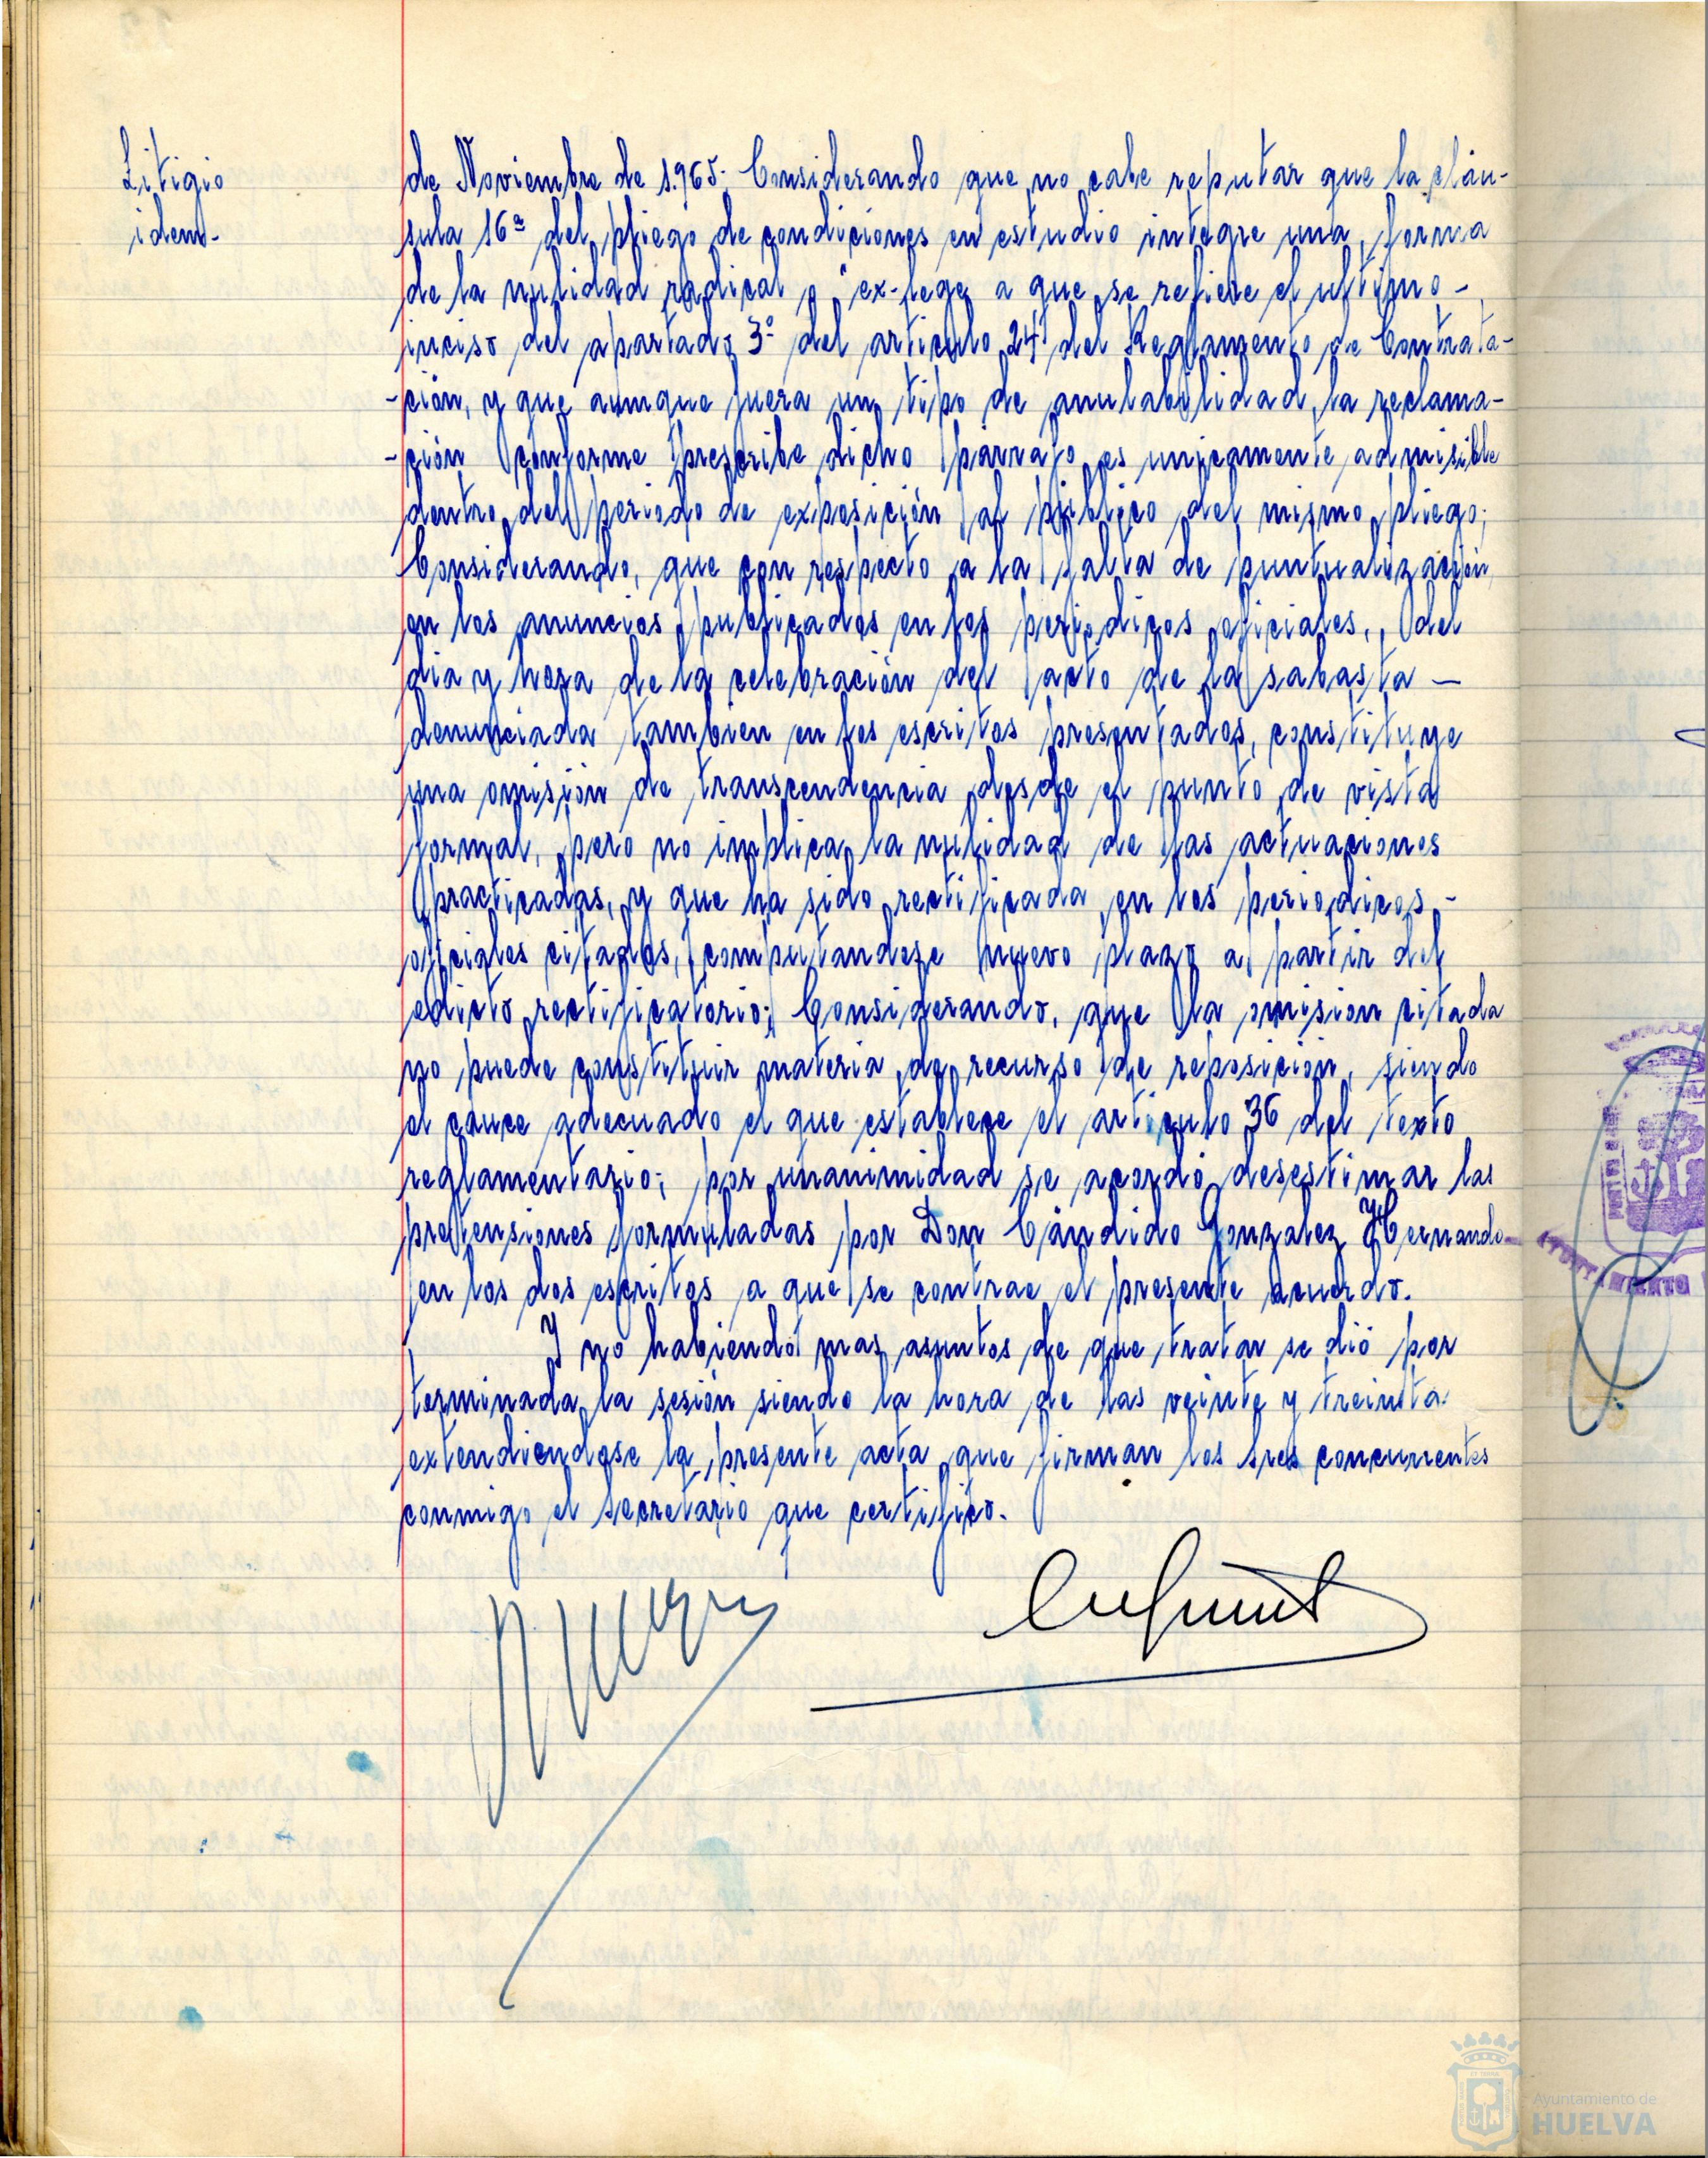 Litigio
idem.
de Noviembre de 1.965. Considerando que no cabe reputar que la cláu-
sula 16ª del pliego de condiciones en estudio integre una forma
de la nulidad radical o "ex-lege a que se refiere el ultimo -
inciso del apartado 3º del articulo 24 del Reglamento de Contrata-
-ción, y que aunque fuera un tipo de anulabilidad, la reclama-
-ción conforme prescribe dicho párrafo es unicamente admisible
dentro del periodo de exposición al público del mismo pliego;
Considerando, que con respecto a la falta de puntualización
en los anuncios publicados en los periodicos oficiales, del
dia y hora de la celebración del acto de la sabasta —
denunciada tambien en los escritos presentados, constituye
una omisión de transcendencia desde el punto de vista
formal, pero no implica la nulidad de las actuaciones
practicadas, y que ha sido rectificada en los periodicos -
oficiales citados, computandose nuevo plazo a partir del
edicto rectificatorio; Considerando, que la omision citada
no puede constituir materia de recurso de reposición, siendo
el cauce adecuado el que establece el articulo 36 del texto
reglamentario; por unanimidad se acordó desestimar las
pretensiones formuladas por Don Cándido Gonzalez Hernando
en los dos escritos a que se contrae el presente acuerdo.
Y no habiendo mas asuntos de que tratar se dió por
terminada la sesión siendo la hora de las veinte y treinta
extendiendose la presente acta que firman los sres concurrentes
conmigo el secretario que certifico.
AYUNTAMIENTO
Ayuntamiento de
HUELVA